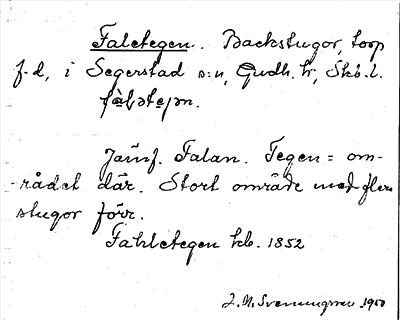 Faletegen. Backstugor, torp
f.d., i Segerstad s:n, Gudh. hr, Skb. l.
fàlətejən.
Jämf. Falan. Tegen = om-
-rådet där. Stort område med flera
stugor förr.
Fahletegen kb. 1852
J. N. Svenningsson 1950